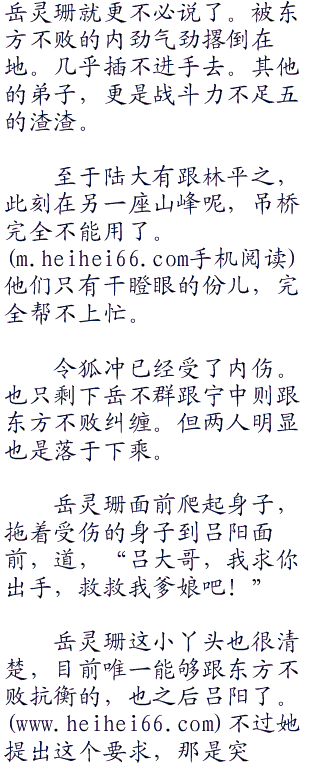 岳灵珊就更不必说了。被东
方不败的内劲气劲撂倒在
地。几乎插不进手去。其他
的弟子，更是战斗力不足五
的渣渣。
至于陆大有跟林平之，
此刻在另一座山峰呢，吊桥
完全不能用了。
(m.heihei66.com手机阅读)
他们只有干瞪眼的份儿，完
全帮不上忙。
令狐冲已经受了内伤。
也只剩下岳不群跟宁中则跟
东方不败纠缠。但两人明显
也是落于下乘。
岳灵珊面前爬起身子，
拖着受伤的身子到吕阳面
前，道，“吕大哥，我求你
出手，救救我爹娘吧！”
岳灵珊这小丫头也很清
楚，目前唯一能够跟东方不
败抗衡的，也之后吕阳了。
(www.heihei66.com)不过她
提出这个要求，那是突